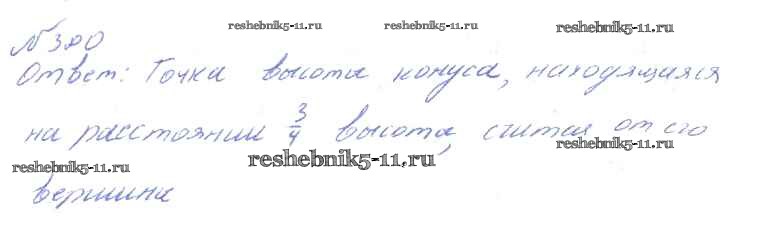 reshebnik5-11.ru reshebnik5-11.ru reshebnik5-11.ru
№ 300
Ответ: Точка высоты конуса, находящаяся
reshebnik5-11.ru
на расстоянии 3/4 высоты, считая от его
reshebnik5-11.ru reshebnik5-11.ru reshebnik5-11.ru
вершины